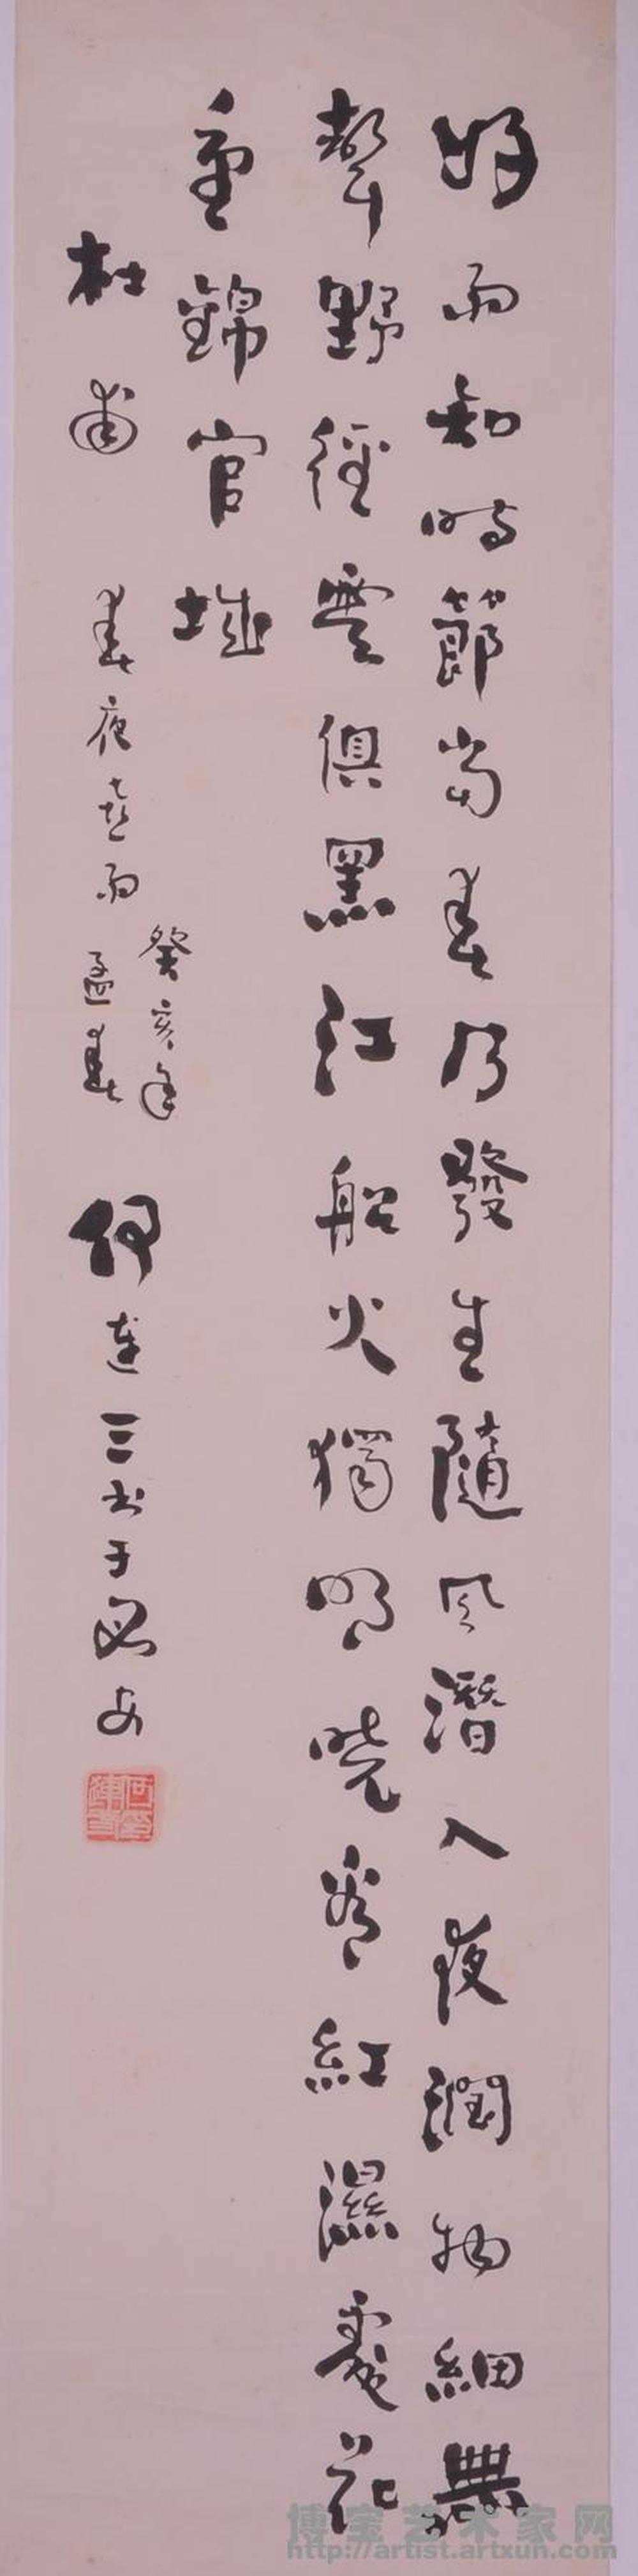 好雨知時節當春乃發生隨風潛入夜潤物細無
聲野徑雲俱黑江船火獨明曉看紅濕處花
重錦官城
杜甫 春夜喜雨
癸亥年
孟春
何連三書于西安
博宝艺术家网
http://artist.artxun.com